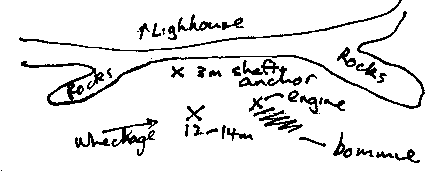 ↑Lighhouse
Rocks
Rocks
x 3m shafty
anchor
x engine
Wreckage
x
12-14m
bommie